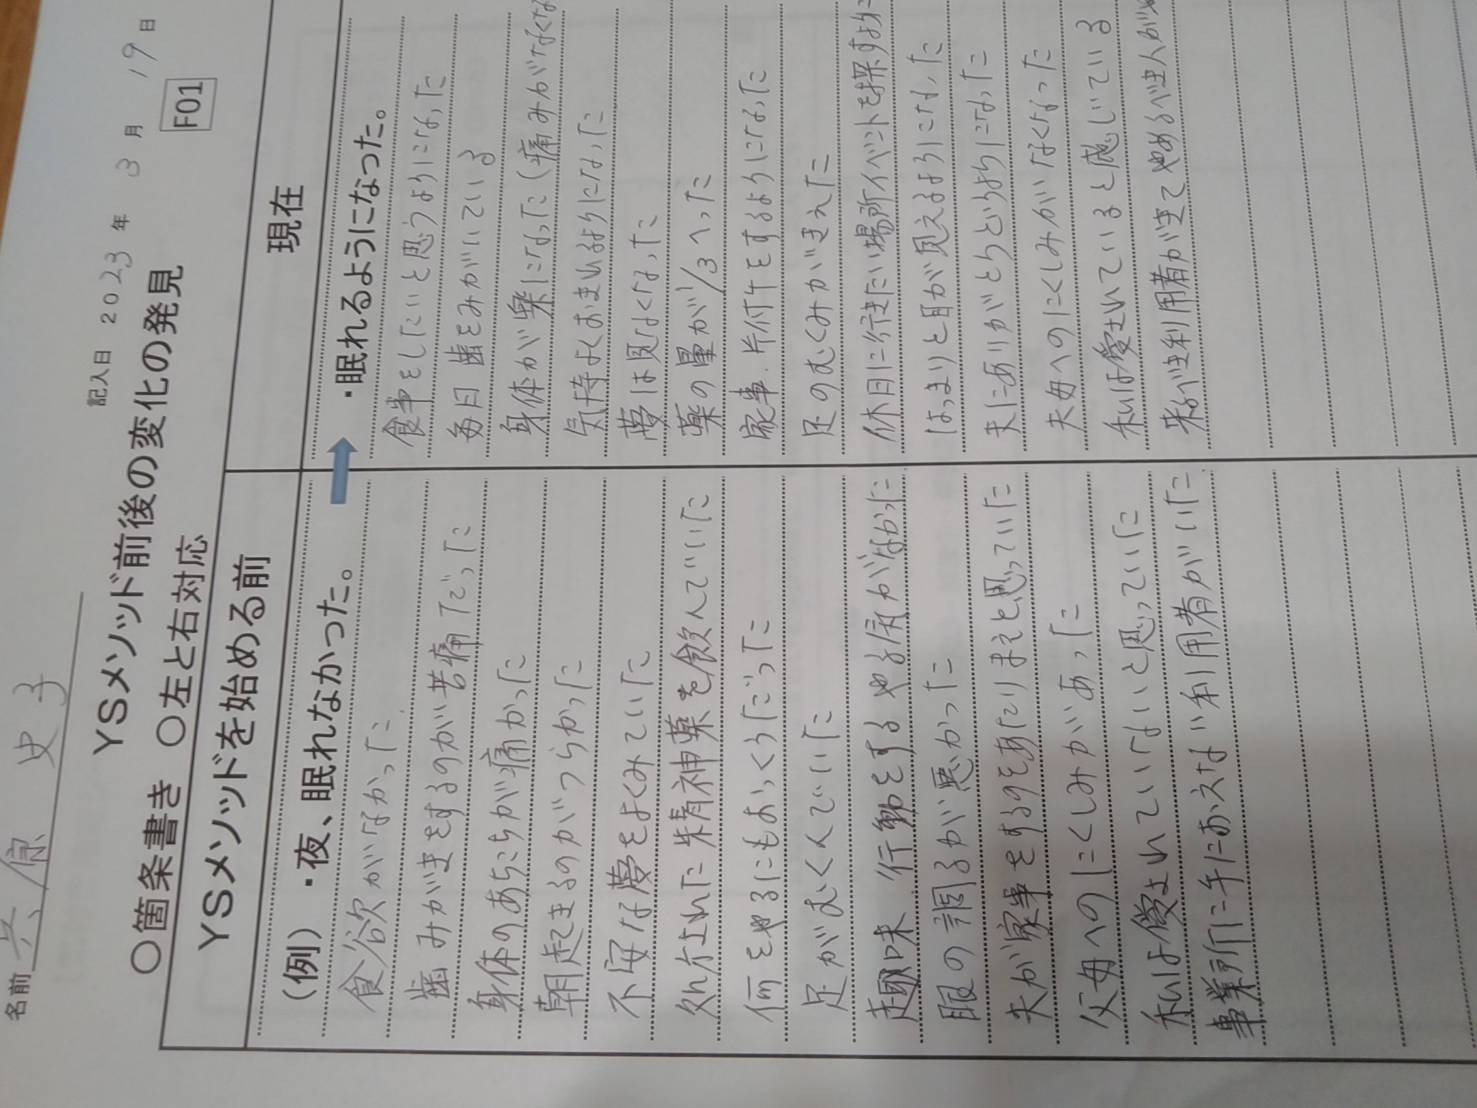 名前 兵原 史子
記入日 2023 年 3 月 19 日
YSメソッド前後の変化の発見
F01
〇箇条書き 〇左と右対応
YSメソッドを始める前
(例)・夜、眠れなかった。
食欲がなかった
歯みがきをするのが苦痛だった
身体のあちこちが痛かった
朝起きるのがつらかった
不安な夢をよくみていた
処方された精神薬を飲んでいた
何をやるにもおっくうだった
足がむくんでいた
趣味 行動をするやる気がなかった
眼の調子が悪かった
夫が家事をするのをあたりまえと思っていた
父母へのにくしみがあった
私は愛されていないと思っていた
事業所に手におえない利用者がいた
現在
・眠れるようになった。
食事をしたいと思うようになった
毎日 歯をみがいている
身体が楽になった(痛みがなくな
気持よくおきれるようになった
夢は見なくなった
薬の量が1/3へった
家事.片付けをするようになった
足のむくみがきえた
休日に行きたい場所イベントを探すよう
はっきりと目が見えるようになった
夫にありがとうというようになった
父母へのにくしみがなくなった
私は愛されていると感じている
利用者が全てやめるべき人が